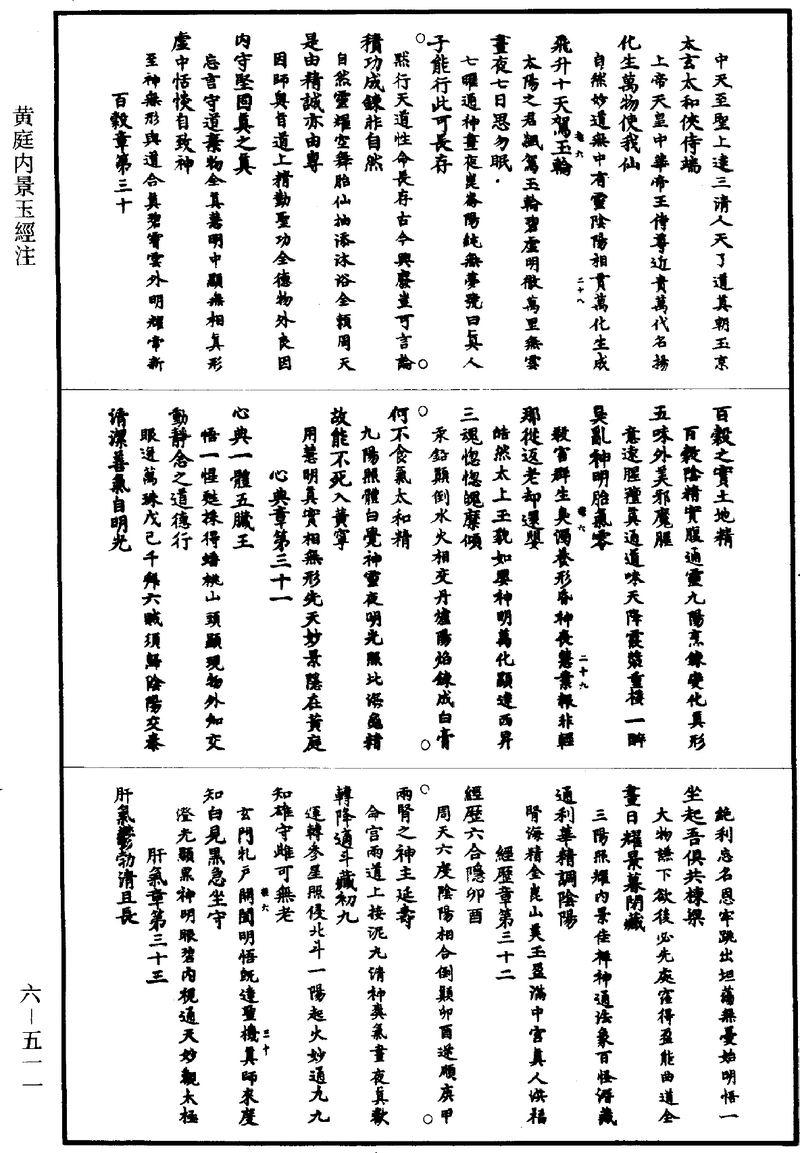 黄庭内景玉經注
中天至聖上達三清人天了道真朝玉京
太玄太和俠侍端
上帝天皇中華帝王侍尊近貴萬代名揚
化生萬物使我仙
自然妙道無中有靈陰陽相貫萬化生成
卷六
二十八
飛升十天駕玉輪
太陽之君飊駕玉輪碧虛明徹萬里無雲
晝夜七日思勿眠
七曜通神晝夜崑崙陽純無夢號曰真人
子能行此可長存
黙行天道性命長存古今興廢豈可言論
積功成鍊非自然
自然靈耀空舞胎仙抽添沐浴全賴周天
是由精誠亦由專
因師奥旨道上精勤聖功全德物外良因
内守堅固真之真
忘言守道棄物全真慧明中顯無相真形
虛中恬惔自致神
至神無形與道合真碧霄雲外明耀常新
百穀章第三十
百穀之實土地精
百穀陰精實腹通靈九陽烹鍊變化真形
五味外美邪魔腥
意遠腥羶真通道味天降霞漿重樓一醉
臭亂神明胎氣零
卷六
二十九
殺害群生臭濁養形昏神喪慧業報非輕
那從返老却還嬰
皓然太上玉貌如嬰神明萬化顯達西昇
三魂惚惚魄糜傾
汞鉛顛倒水火相交丹爐陽焰鍊成白膏
何不食氣太和精
九陽照體白覺神靈夜明光照比深龜精
故能不死入黄寧
用慧明真實相無形先天妙景隱在黄庭
心典章第三十一
心典一體五臟王
悟一惺甦採得蟠桃山頭顯現物外知交
動靜念之道德行
眼迸萬珠戊己千解六賊須解陰陽交泰
清潔善氣自明光
絶利忘名恩牢跳出坦蕩無憂始明悟一
坐起吾俱共棟梁
大物謙下欲後必先處窪得盈能曲道全
晝日耀景暮閉藏
三陽照耀内景佳祥神通法象百怪潛藏
通利華精調陰陽
腎海精金崑山美玉盈滿中宫真人洪福
經歷章第三十二
經歷六合隱卯酉
周天六度陰陽相合倒顛卯酉逆順庚甲
兩腎之神主延壽
命宫兩道上接泥丸清神爽氣晝夜真歡
轉降適斗藏初九
運轉參星照侵北斗一陽起火妙通九九
知雄守雌可無老
卷六
三十
玄門牝戸開闔明悟既達聖機真師來度
知白見黑急坐守
澄光顯黑神明眼碧内視通天妙觀太極
肝氣章第三十三
肝氣鬱勃清且長
六—五一一